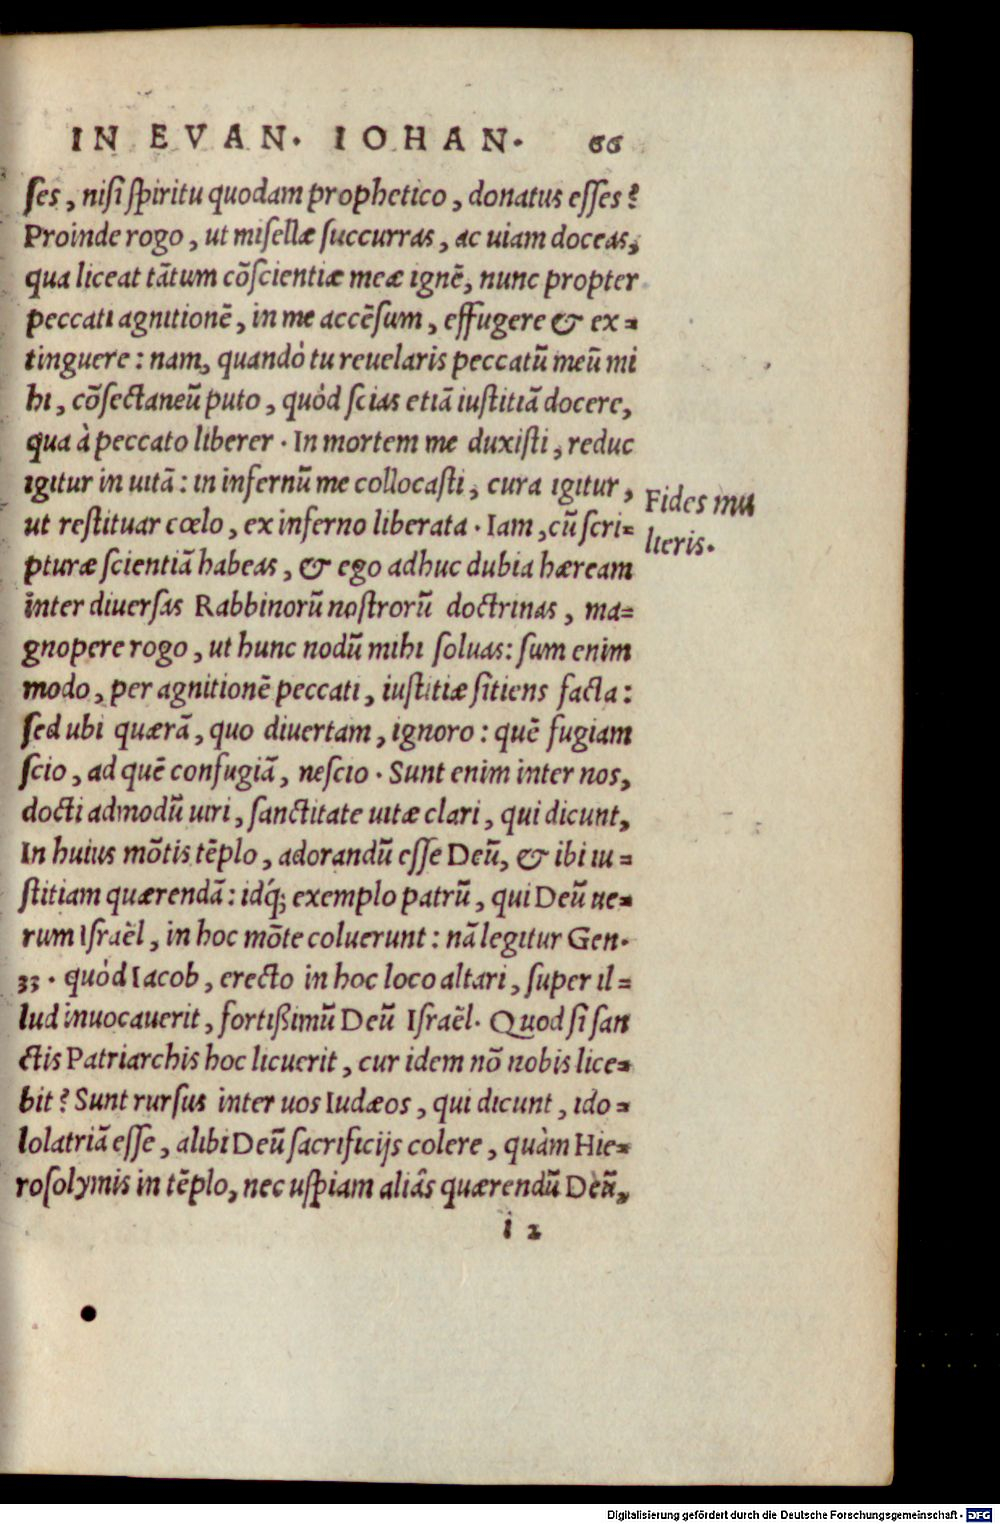 IN EVAN. IOHAN. 66
ſes, niſi ſpiritu quodam prophetico, donatus eſſes?
Proinde rogo, ut miſellæ ſuccurras, ac uiam doceas,
qua liceat tãtum cõſcientiæ meæ ignẽ, nunc propter
peccati agnitionẽ, in me accẽſum, effugere & ex=
tinguere: nam, quandò tu reuelaris peccatũ meũ mi
hi, cõſectaneũ puto, quòd ſcias etiã iuſtitiã docere,
qua à peccato liberer. In mortem me duxiſti, reduc
igitur in uitã: in infernũ me collocaſti, cura igitur,
Fides mu
ut reſtituar cœlo, ex inferno liberata. Iam, cũ ſcri=
lieris.
pturæ ſcientiã habeas, & ego adhuc dubia hæream
inter diuerſas Rabbinorũ noſtrorũ doctrinas, ma=
gnopere rogo, ut hunc nodũ mihi ſoluas: ſum enim
modo, per agnitionẽ peccati, iuſtitiæ ſitiens facta:
ſed ubi quærã, quo diuertam, ignoro: quẽ fugiam
ſcio, ad quẽ confugiã, neſcio. Sunt enim inter nos,
docti admodũ uiri, ſanctitate uitæ clari, qui dicunt,
In huius mõtis tẽplo, adorandũ eſſe Deũ, & ibi iu=
ſtitiam quærendã: idq́; exemplo patrũ, qui Deũ ue=
rum Iſraèl, in hoc mõte coluerunt: nã legitur Gen.
33. quòd Iacob, erecto in hoc loco altari, ſuper il=
lud inuocauerit, fortißimũ Deũ Iſraèl. Quod ſi ſan
ctis Patriarchis hoc licuerit, cur idem nõ nobis lice=
bit? Sunt rurſus inter uos Iudæos, qui dicunt, ido=
lolatriã eſſe, alibi Deũ ſacrificijs colere, quàm Hie=
roſolymis in tẽplo, nec uſpiam aliâs quærendũ Deũ,
i 2
Digitalisierung gefördert durch die Deutsche Forschungsgemeinschaft - DFG